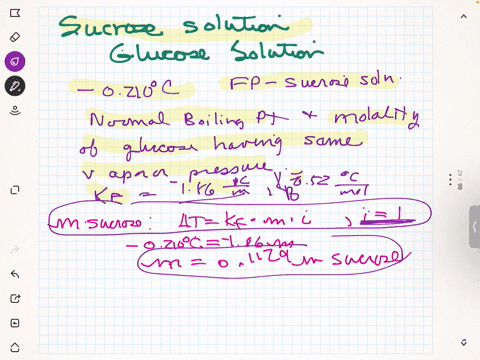 Sucrose solution
Glucose Solution
-0.210°C FP - sucrose soln.
Normal Boiling Pt + molality
of glucose having same
vapor pressure
KF = -1.86 °C/m, 0.52 °C/m
m sucrose: ΔT = KF · m · i , i = 1
-0.210°C = -1.86 m
m = 0.1129 m sucrose